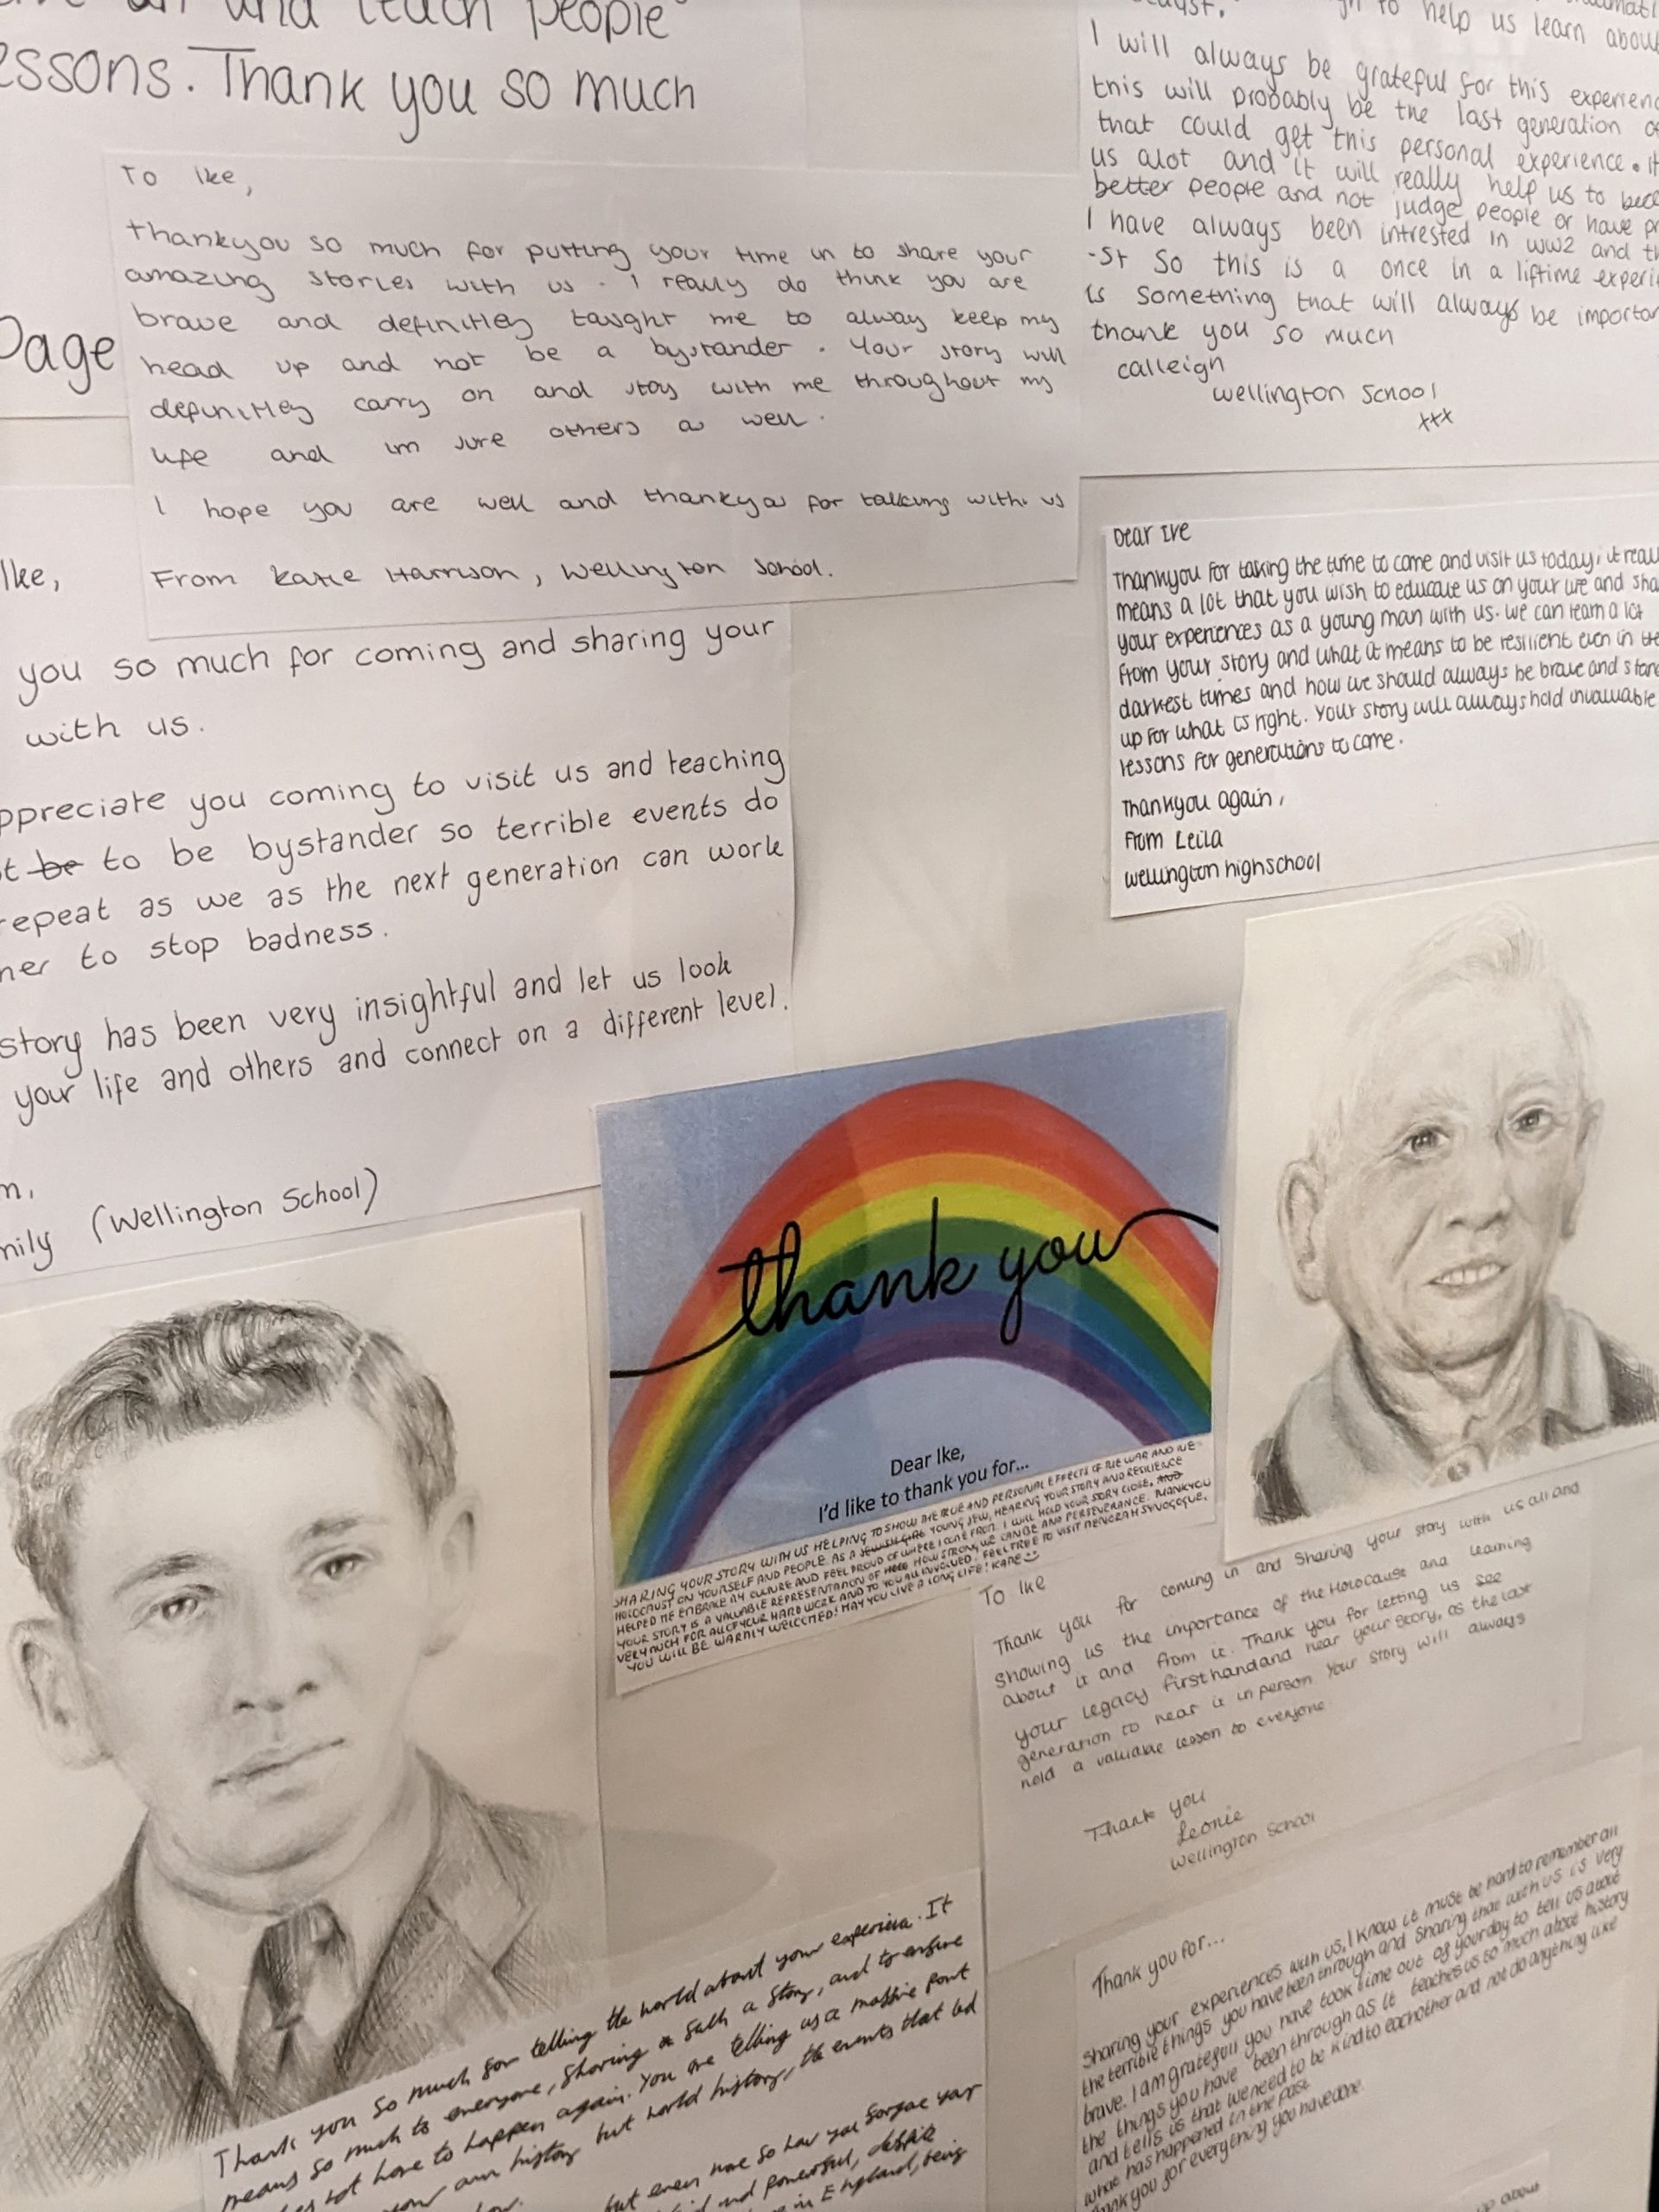 and teach people
essons. Thank you so much
Page
To Ike,
thankyou so much for putting your time in to share your
amazing stories with us. I really do think you are
brave and definitley taught me to alway keep my
head up and not be a bystander. Your story will
definitley carry on and stay with me throughout my
life and im sure others as well.
I hope you are well and thankyou for talking with us
From Katie Harrison, Wellington School.
to help us learn about
I will always be grateful for this experien
this will probably be the last generation
that could get this personal experience. it
us alot and it will really help us to bec
better people and not judge people or have pr
I have always been intrested in ww2 and th
-st So this is a once in a liftime experi
is something that will always be importan
thank you so much
calleigh
Wellington School
xxx
Dear Ike
Thankyou for taking the time to come and visit us today, it reall
means a lot that you wish to educate us on your life and sha
your experiences as a young man with us. we can learn a lot
from your story and what it means to be resilient even in the
darkest times and how we should always be brave and stand
up for what is right. Your story will always hold invaluable
lessons for generations to come.
Thankyou again,
From Leila
wellington highschool
Ike,
you so much for coming and sharing your
with us.
ppreciate you coming to visit us and teaching
t be to be bystander so terrible events do
repeat as we as the next generation can work
her to stop badness.
story has been very insightful and let us look
your life and others and connect on a different level.
m,
mily (Wellington School)
thank you
Dear Ike,
I'd like to thank you for...
SHARING YOUR STORY WITH US HELPING TO SHOW THE TRUE AND PERSONAL EFFECTS OF THE WAR AND THE
HOLOCAUST ON YOURSELF AND PEOPLE. AS A JEWISH GIRL YOUNG JEW, HEARING YOUR STORY AND RESILIENCE
HELPED ME EMBRACE MY CULTURE AND FEEL PROUD OF WHERE I COME FROM. I WILL HOLD YOUR STORY CLOSE, AND
YOUR STORY IS A VALUABLE REPRESENTATION OF HOW STRONG WE CAN BE AND PERSEVERANCE. THANKYOU
VERY MUCH FOR ALL OF YOUR HARD WORK AND TO YOU ALL INVOLVED! FEEL FREE TO VISIT MENORAH SYNOGOGUE,
YOU WILL BE WARMLY WELCOMED! MAY YOU LIVE A LONG LIFE!
To Ike
Thank you for coming in and Sharing your story with us all and
showing us the importance of the Holocaust and learning
about it and from it. Thank you for letting us see
your legacy firsthand and hear your story, as the last
generation to hear it in person. Your story will always
hold a valuable lesson to everyone.
Thank you
Leonie
Wellington School
Thank you so much for telling the world about your experience. It
means so much to everyone, sharing a such a story, and to ensure
not have to happen again. You are telling us a massive part
our history but world history, the events that led
but even more so how you forgave your
and powerful, despite
in England, being
Thank you for...
Sharing your experiences with us, I know it must be hard to remember all
the terrible things you have been through and Sharing that with us is very
brave. I am grateful you have took time out of your day to tell us about
the things you have been through as it teaches us so much about history
and tells us that we need to be kind to eachother and not do anything like
what has happened in the past.
thank you for everything you have done.
about